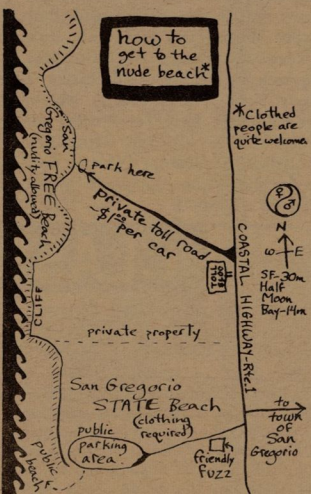 how to
get to the
nude beach*
*Clothed
people are
quite welcome
San
Gregorio FREE Beach
(nudity allowed)
park here
private toll road
-$1.00 per car
TOLL
GATE
COASTAL HIGHWAY-Rte.1
N
W
E
SF-30m
Half
Moon
Bay-14m
CLIFF
private property
San Gregorio
STATE Beach
(clothing
required)
public
parking
area
public
beach
friendly
fuzz
to
town
of
San
Gregorio